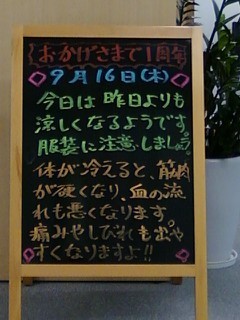 おかげさまで1周年
9月16日(木)
今日は昨日よりも
涼しくなるようです。
服装に注意しましょう。
体が冷えると、筋肉
が硬くなり、血の流
れも悪くなります。
痛みやしびれも出や
すくなりますよ!!